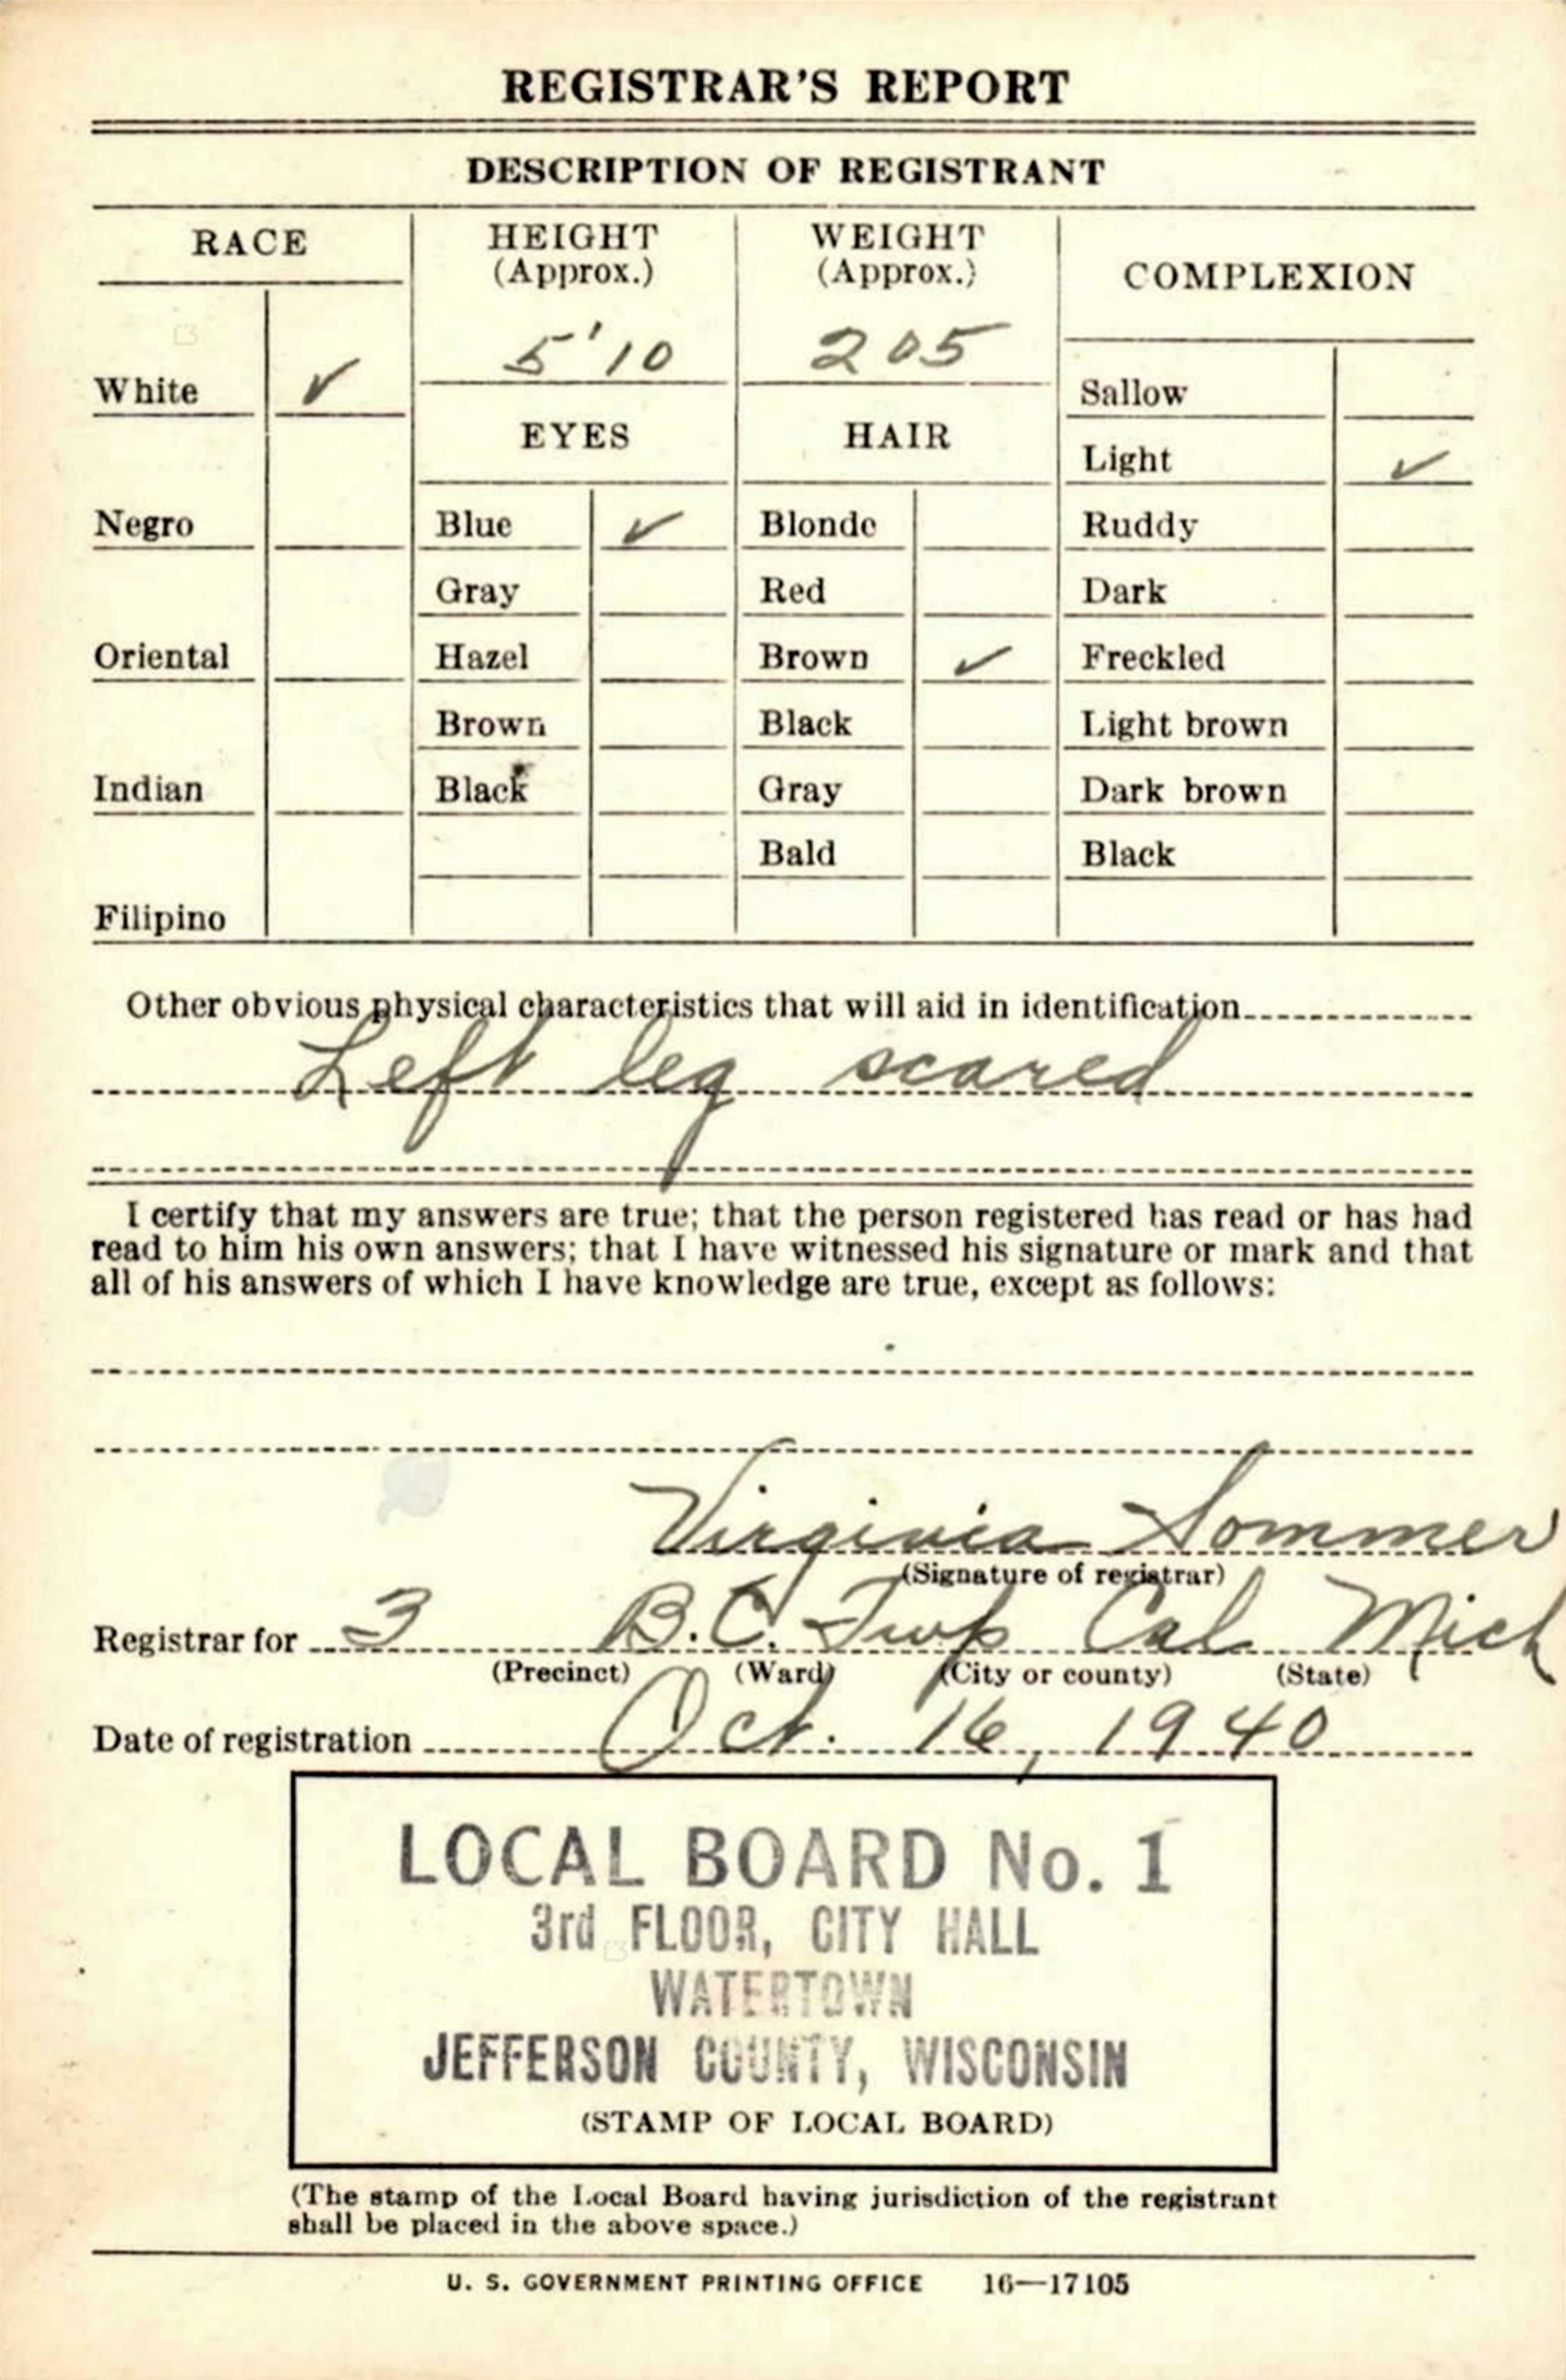 REGISTRAR'S REPORT
DESCRIPTION OF REGISTRANT
RACE HEIGHT (Approx.) WEIGHT (Approx.) COMPLEXION
5'10 205
White ✓ Sallow
EYES HAIR Light ✓
Negro Blue ✓ Blonde Ruddy
Gray Red Dark
Oriental Hazel Brown ✓ Freckled
Brown Black Light brown
Indian Black Gray Dark brown
Bald Black
Filipino
Other obvious physical characteristics that will aid in identification
Left leg scared
I certify that my answers are true; that the person registered has read or has had
read to him his own answers; that I have witnessed his signature or mark and that
all of his answers of which I have knowledge are true, except as follows:
Virginia Sommer
(Signature of registrar)
Registrar for 3 B.C. Twp Cal Mich
(Precinct) (Ward) (City or county) (State)
Date of registration Oct. 16, 1940
LOCAL BOARD No. 1
3rd FLOOR, CITY HALL
WATERTOWN
JEFFERSON COUNTY, WISCONSIN
(STAMP OF LOCAL BOARD)
(The stamp of the Local Board having jurisdiction of the registrant
shall be placed in the above space.)
U. S. GOVERNMENT PRINTING OFFICE 16—17105